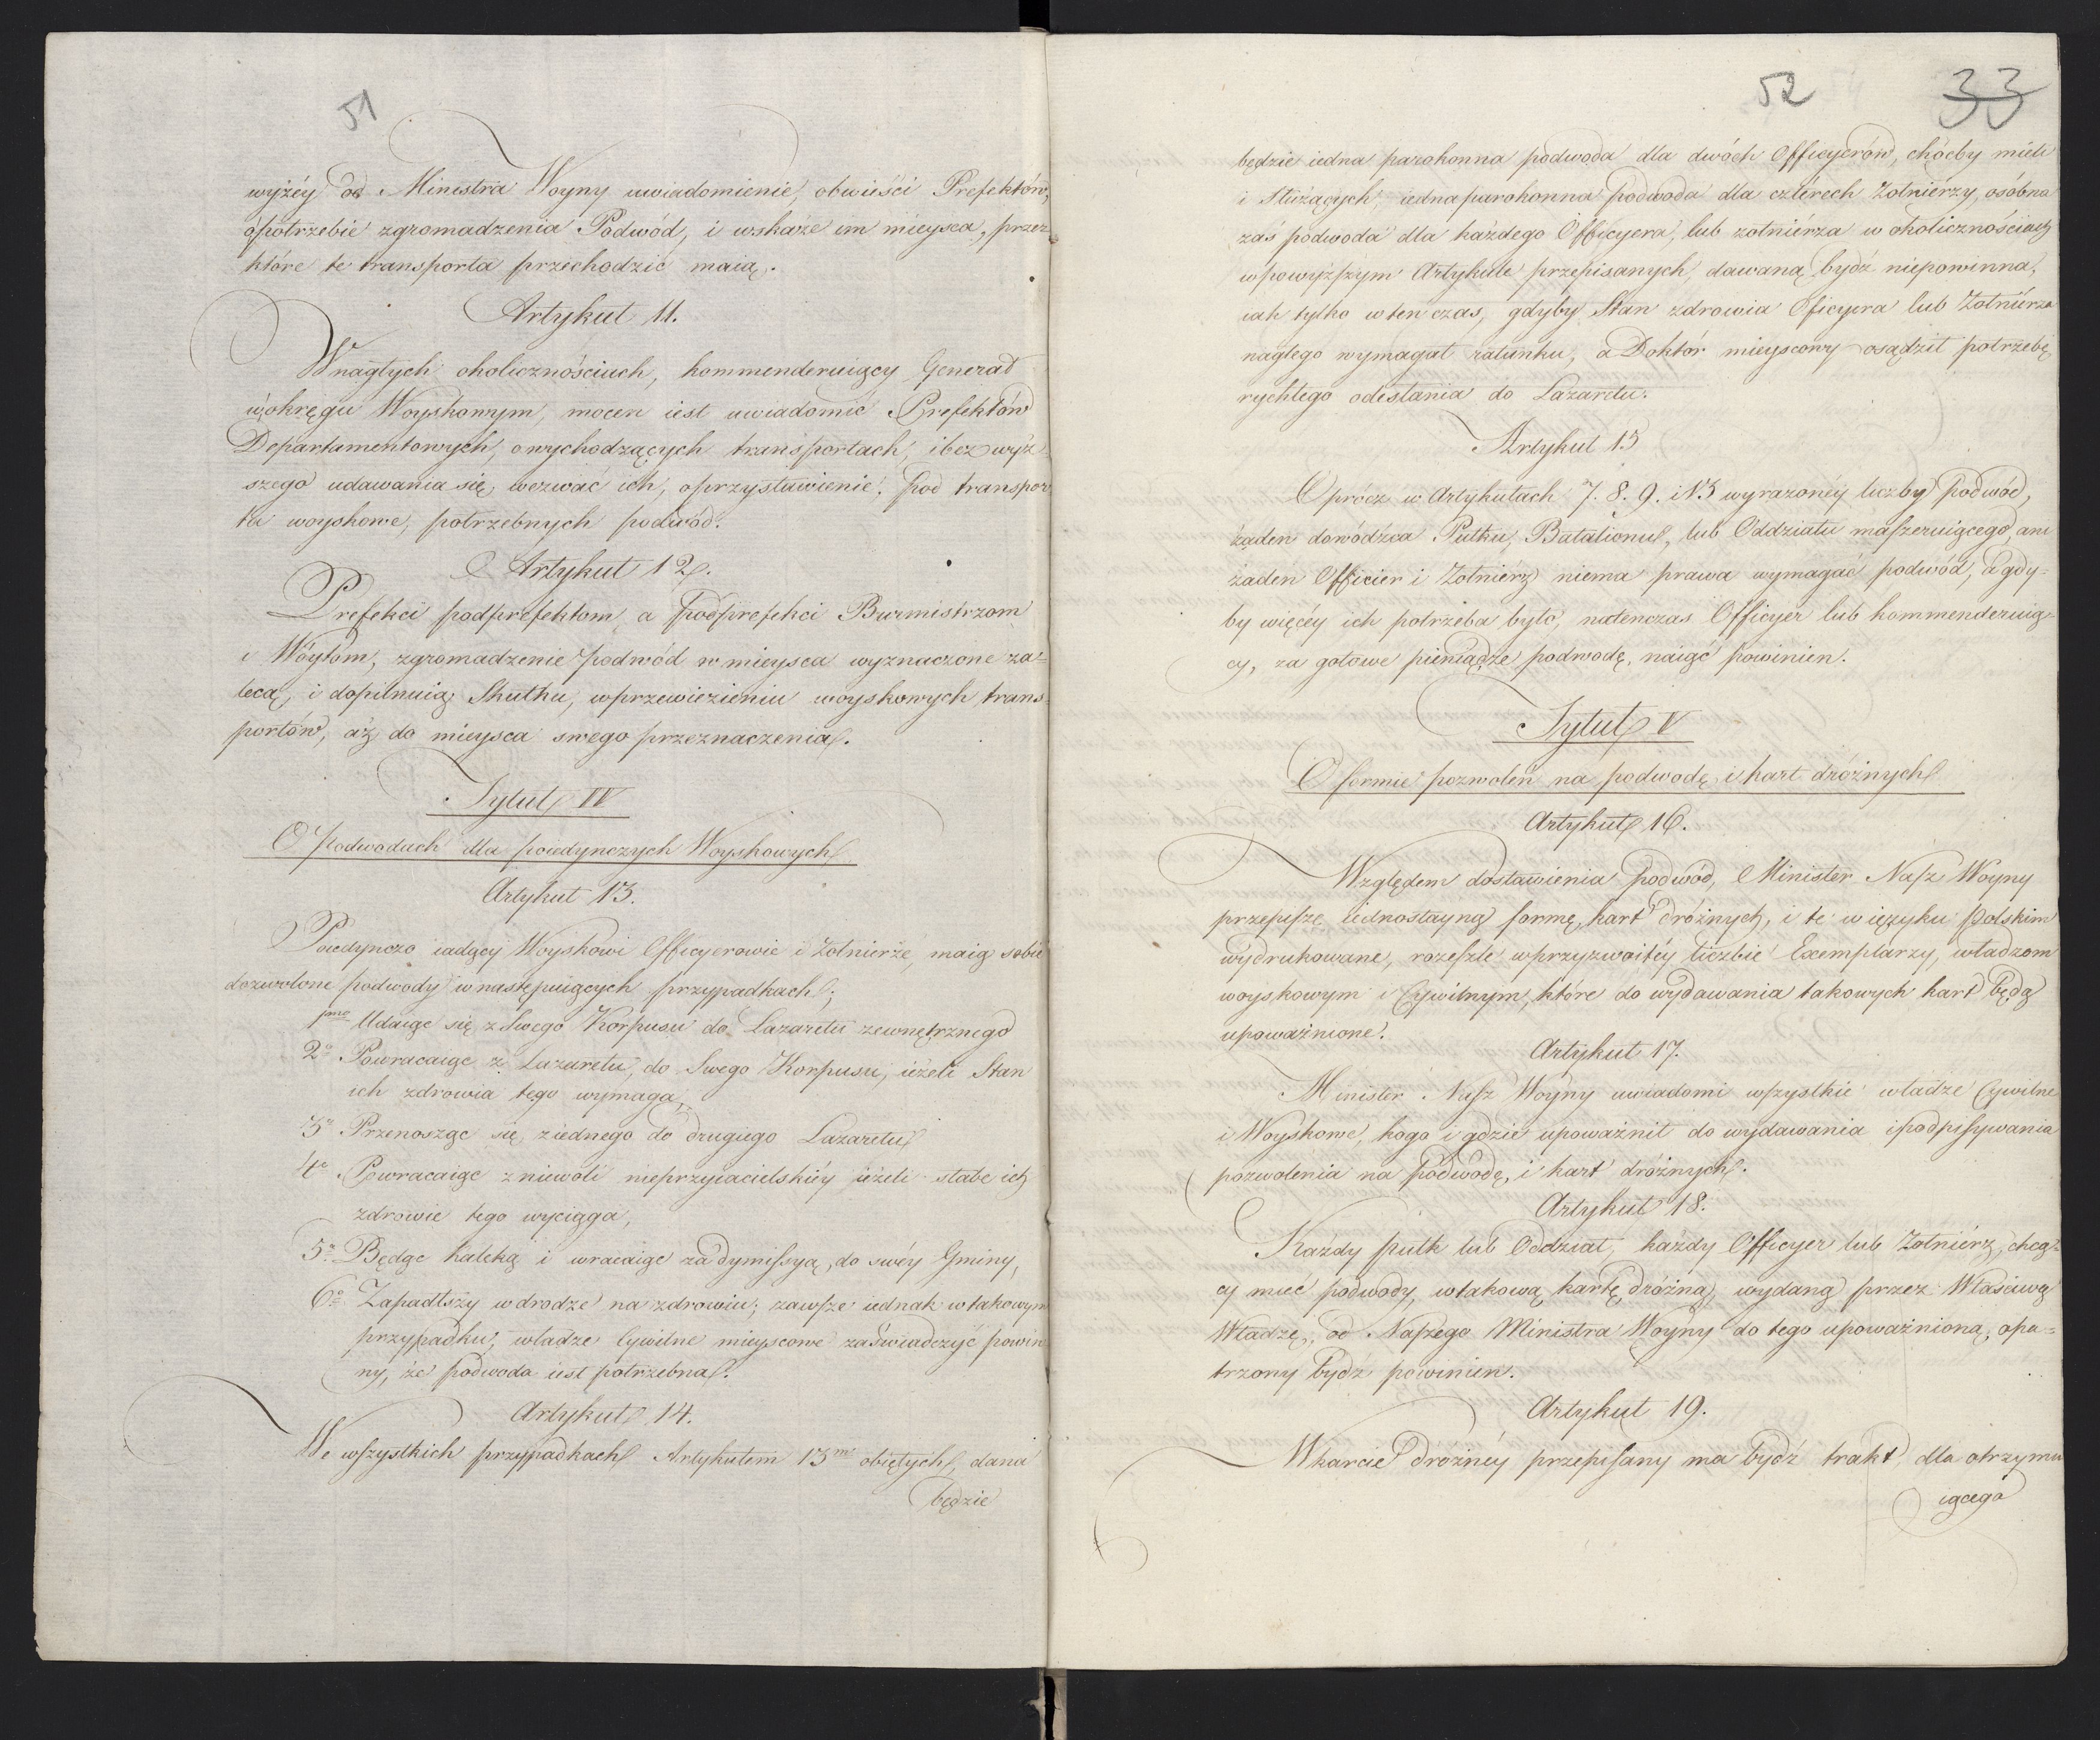 51
wyżéy od Ministra Woyny uwiadomienie, obwieści Prefektów,
o potrzebie zgromadzenia Podwód, i wskaże im mieysca, przez
które te transporta przechodzić maią.
Artykuł 11.
W nagłych okolicznościach, kommenderuiący Generał
w okręgu Woyskowym, mocen iest uwiadomić Prefektów
Departamentowych, o wychodzących transportach, i bez wyż-
szego udawania się, wezwać ich, o przystawienie, pod transpor
ta woyskowe, potrzebnych podwód.
Artykuł 12.
Prefekci podprefektom, a podprefekci Burmistrzom
i Wóytom, zgromadzenie podwód w mieysca wyznaczone za-
lecą, i dopilnuią Skutku, w przewiezieniu woyskowych trans
portów, aż do mieysca swego przeznaczenia.
Tytuł IV
O Podwodach dla poiedynczych Woyskowych
Artykuł 13.
Poiedynczo iadący Woyskowi Officyerowie i Żołnierze, maią sobie
dozwolone podwody w następuiących przypadkach;
1mo Udaiąc się z Swego Korpusu do Lazaretu zewnętrznego
2o Powracaiąc z Lazaretu, do Swego Korpusu, ieżeli Stan
ich zdrowia tego wymaga,
3o Przenosząc się, z iednego do drugiego Lazaretu
4o Powracaiąc z niewoli nieprzyiacielskiéy ieżeli słabe ich
zdrowie tego wyciąga,
5o Będąc kaleką i wracaiąc za dymissyą, do swéy Gminy,
6o Zapadłszy w drodze na zdrowiu; zawsze iednak w takowym
przypadku, władze Cywilne mieyscowe zaświadczyć powin
ny, że podwoda iest potrzebna.
Artykuł 14.
We wszystkich przypadkach Artykułem 13m obiętych, dana
będzie
52 33
będzie iedna parokonna podwoda dla dwóch Officyerów, choćby mieli
i Służących, iedna parokonna podwoda dla czterech Żołnierzy, osóbna
zaś podwoda dla każdego Officyera, lub żołnierza w okolicznościach
w powyższym Artykule przepisanych, dawaną bydź niepowinna,
iak tylko w ten czas, gdyby Stan zdrowia Oficyera lub Żołnierza
nagłego wymagał ratunku, a Doktór mieyscowy osądził potrzebę
rychłego odesłania do Lazaretu.
Artykuł 15
Oprócz w Artykułach 7. 8. 9. i 13 wyrażoney liczby Podwód,
żaden dowódzca Pułku, Batalionu, lub Oddziału maszeruiącego, ani
żaden Officier i Żołnierz niema prawa wymagać podwód, a gdy-
by więcéy ich potrzeba było, natenczas Officyer lub kommenderuią-
cy, za gotowe pieniądze podwodę, naiąć powinien.
Tytuł V
O formie pozwoleń na podwodę, i kart dróżnych
Artykuł 16.
Względem dostawienia Podwód, Minister Nasz Woyny
przepisze iednostayną formę kart dróżnych, i te w ięzyku polskim
wydrukowane, rozeszle w przyzwoitéy liczbie Exemplarzy, władzom
woyskowym i Cywilnym, które do wydawania takowych kart będą
upoważnione.
Artykuł 17.
Minister Nasz Woyny uwiadomi wszystkie władze Cywilne
i Woyskowe, kogo i gdzie upoważnił do wydawania i podpisywania
pozwolenia na podwodę, i kart dróżnych.
Artykuł 18.
Każdy pułk lub Oddział, każdy Officyer lub Żołnierz, chcą-
cy mieć podwody, w takową kartę dróżną, wydaną przez Właściwą
Władzę, od Naszego Ministra Woyny do tego upoważnioną, opa-
trzony bydź powinien.
Artykuł 19.
W karcie dróżnéy przepisany ma bydź trakt, dla otrzymu
iącego